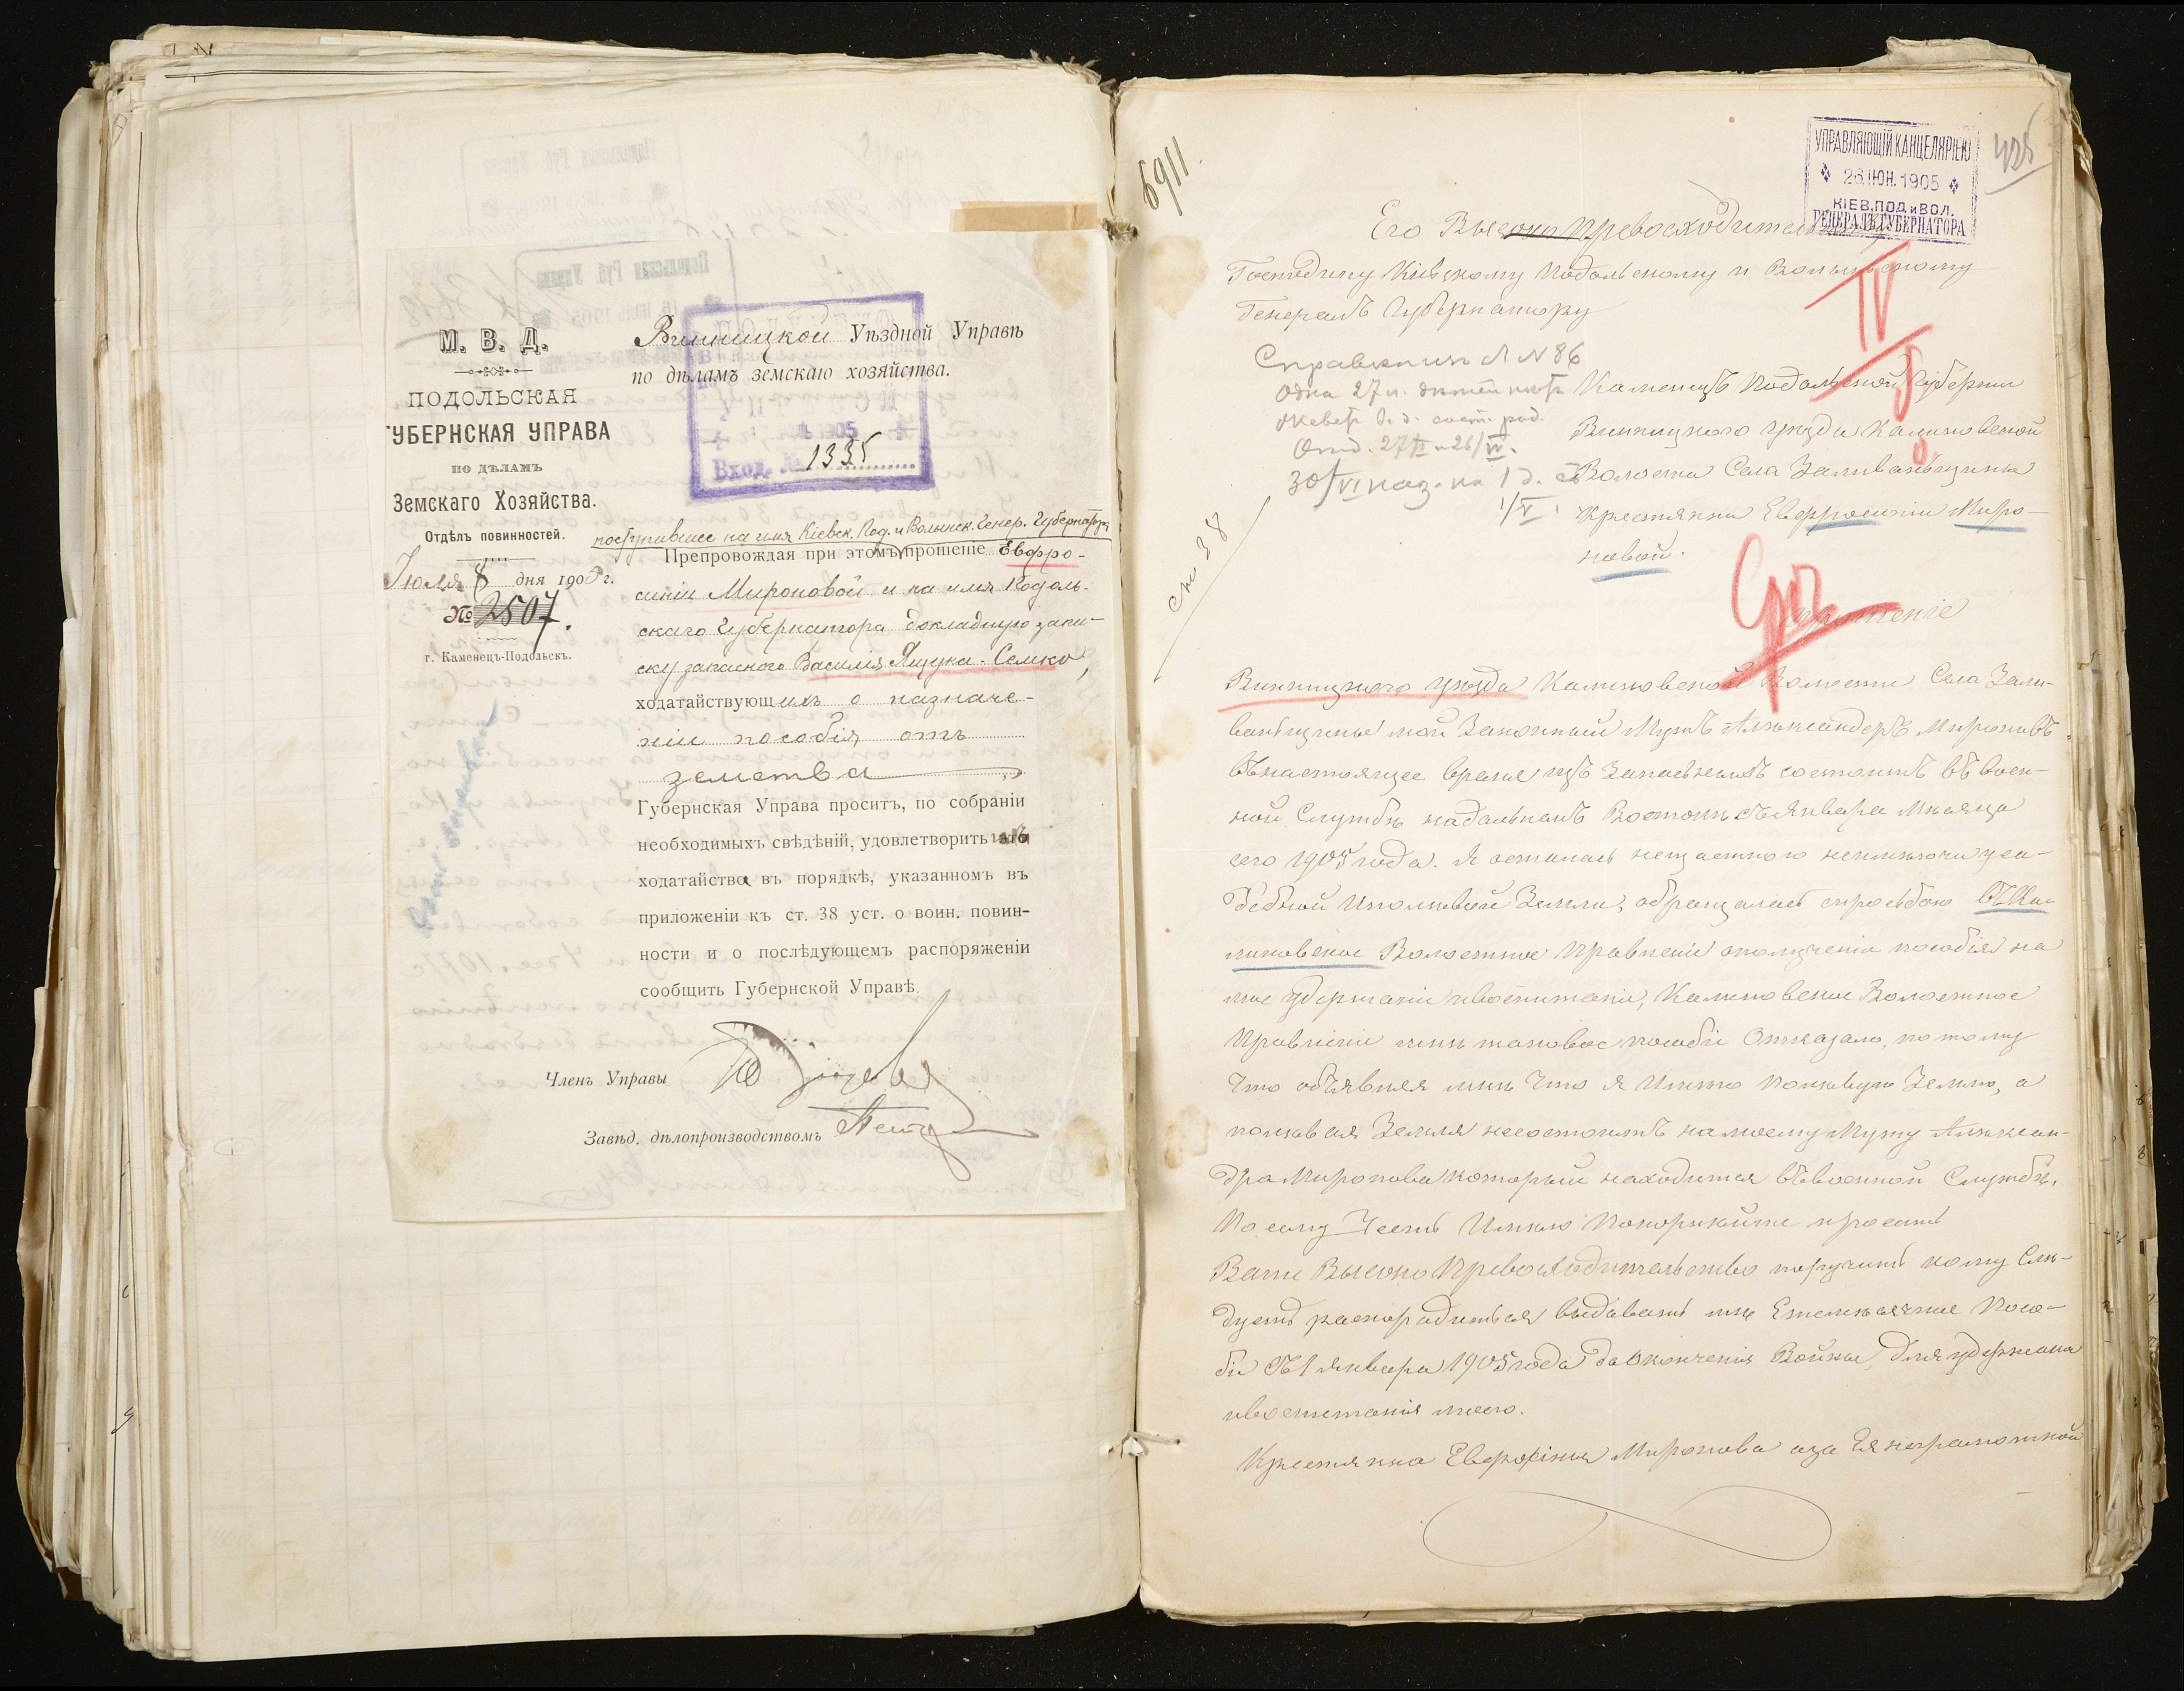 М. В. Д.
ПОДОЛЬСКАЯ
ГУБЕРНСКАЯ УПРАВА
ПО ДѢЛАМЪ
Земскаго Хозяйства.
Отдѣлъ повинностей.
Іюля 8 дня 1905 г.
№ 2507.
г. Каменецъ-Подольскъ.
Винницкой Уѣздной Управѣ
по дѣламъ земскаго хозяйства.
1905
Вход. № 1335
поступившее на имя Кіевск. Под. и Волынск. Генер. Губернатора
Препровождая при этомъ прошеніе Евфро-
синіи Мироновой и на имя Подоль-
скаго Губернатора докладную запи-
ску запаснаго Василія Ящука-Семко,
ходатайствующихъ о назначе-
ніи пособія отъ
земства
Губернская Управа проситъ, по собраніи
необходимыхъ свѣдѣній, удовлетворить
ходатайства въ порядкѣ, указанномъ въ
приложеніи къ ст. 38 уст. о воин. повин-
ности и о послѣдующемъ распоряженіи
сообщить Губернской Управѣ.
Членъ Управы
Завѣд. дѣлопроизводствомъ
6911.
УПРАВЛЯЮЩІЙ КАНЦЕЛЯРІЕЮ
26 ІЮН. 1905
КІЕВ, ПОД. и ВОЛ.
ГЕНЕРАЛЪ ГУБЕРНАТОРА
Его Высоко Превосходительству
Господину Кіевскому Подольскому и Волынскому
Генералъ Губернатору
IV
№ 86
Каменецъ Подольской Губерніи
Винницкого уѣзда Калиновской
Волости Села Заливанщины
Крестянки Евфросиніи Миро-
новой.
Прошеніе
Винницкого уѣзда Калиновской Волости Села Зали-
ванщины мой Законный Мужъ Алѣксандеръ Мироновъ
въ настоящее время изъ Запасныхъ состоитъ въ воен-
ной Службѣ на дальнемъ Востокѣ съ Января Мѣсяца
сего 1905 года. Я осталась неимѣючи уса-
дебной И полѣвой Земли, обращалась с просьбою въ Ка-
линовское Волостное Правленіе о полученіи пособія на
мое удержаніе и воспитаніе, Калиновское Волостное
Правленіе мнѣ таковое пособіе Отказало, потому
Что объявля мнѣ Что я Имѣю Полѣвую Землю, а
полѣвая Земля несостоитъ на моему Мужу Алѣксан-
дра Миронова который находится въ военной Службѣ,
По сему Честь Имѣю Покорнейше просить
Ваше Высоко Превосходительство поручить кому Слѣ-
дуетъ распорядиться выдавать мнѣ Ежемѣсячное Посо-
біе Съ 1 Января 1905 года до Окончанія Войны, для удержана
и воспитанія моего.
Крестянка Еврофинія Миронова а за Ея неграмотной